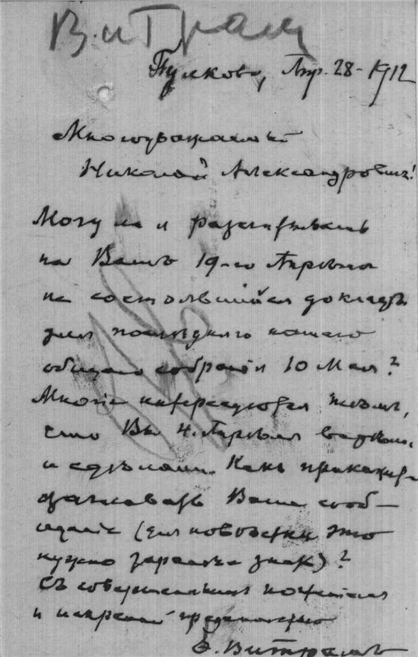 В. и Трам
Пулково, Апр. 28-1912
Многоуважаемый
Николай Александровичъ!
Могу ли я разсчитывать
на Вашъ 19-го Апрѣля
не состоявшійся докладъ
для послѣдняго нашего
общаго собранія 10 Мая?
Многіе интересуются тѣмъ,
что Вы 4. Апрѣля
и сдѣлали. Какъ
Ваше сооб-
щеніе (для повѣстки это
нужно заранѣе знать)?
Съ совершеннымъ почтеніемъ
и искренней преданностью
Витрамъ